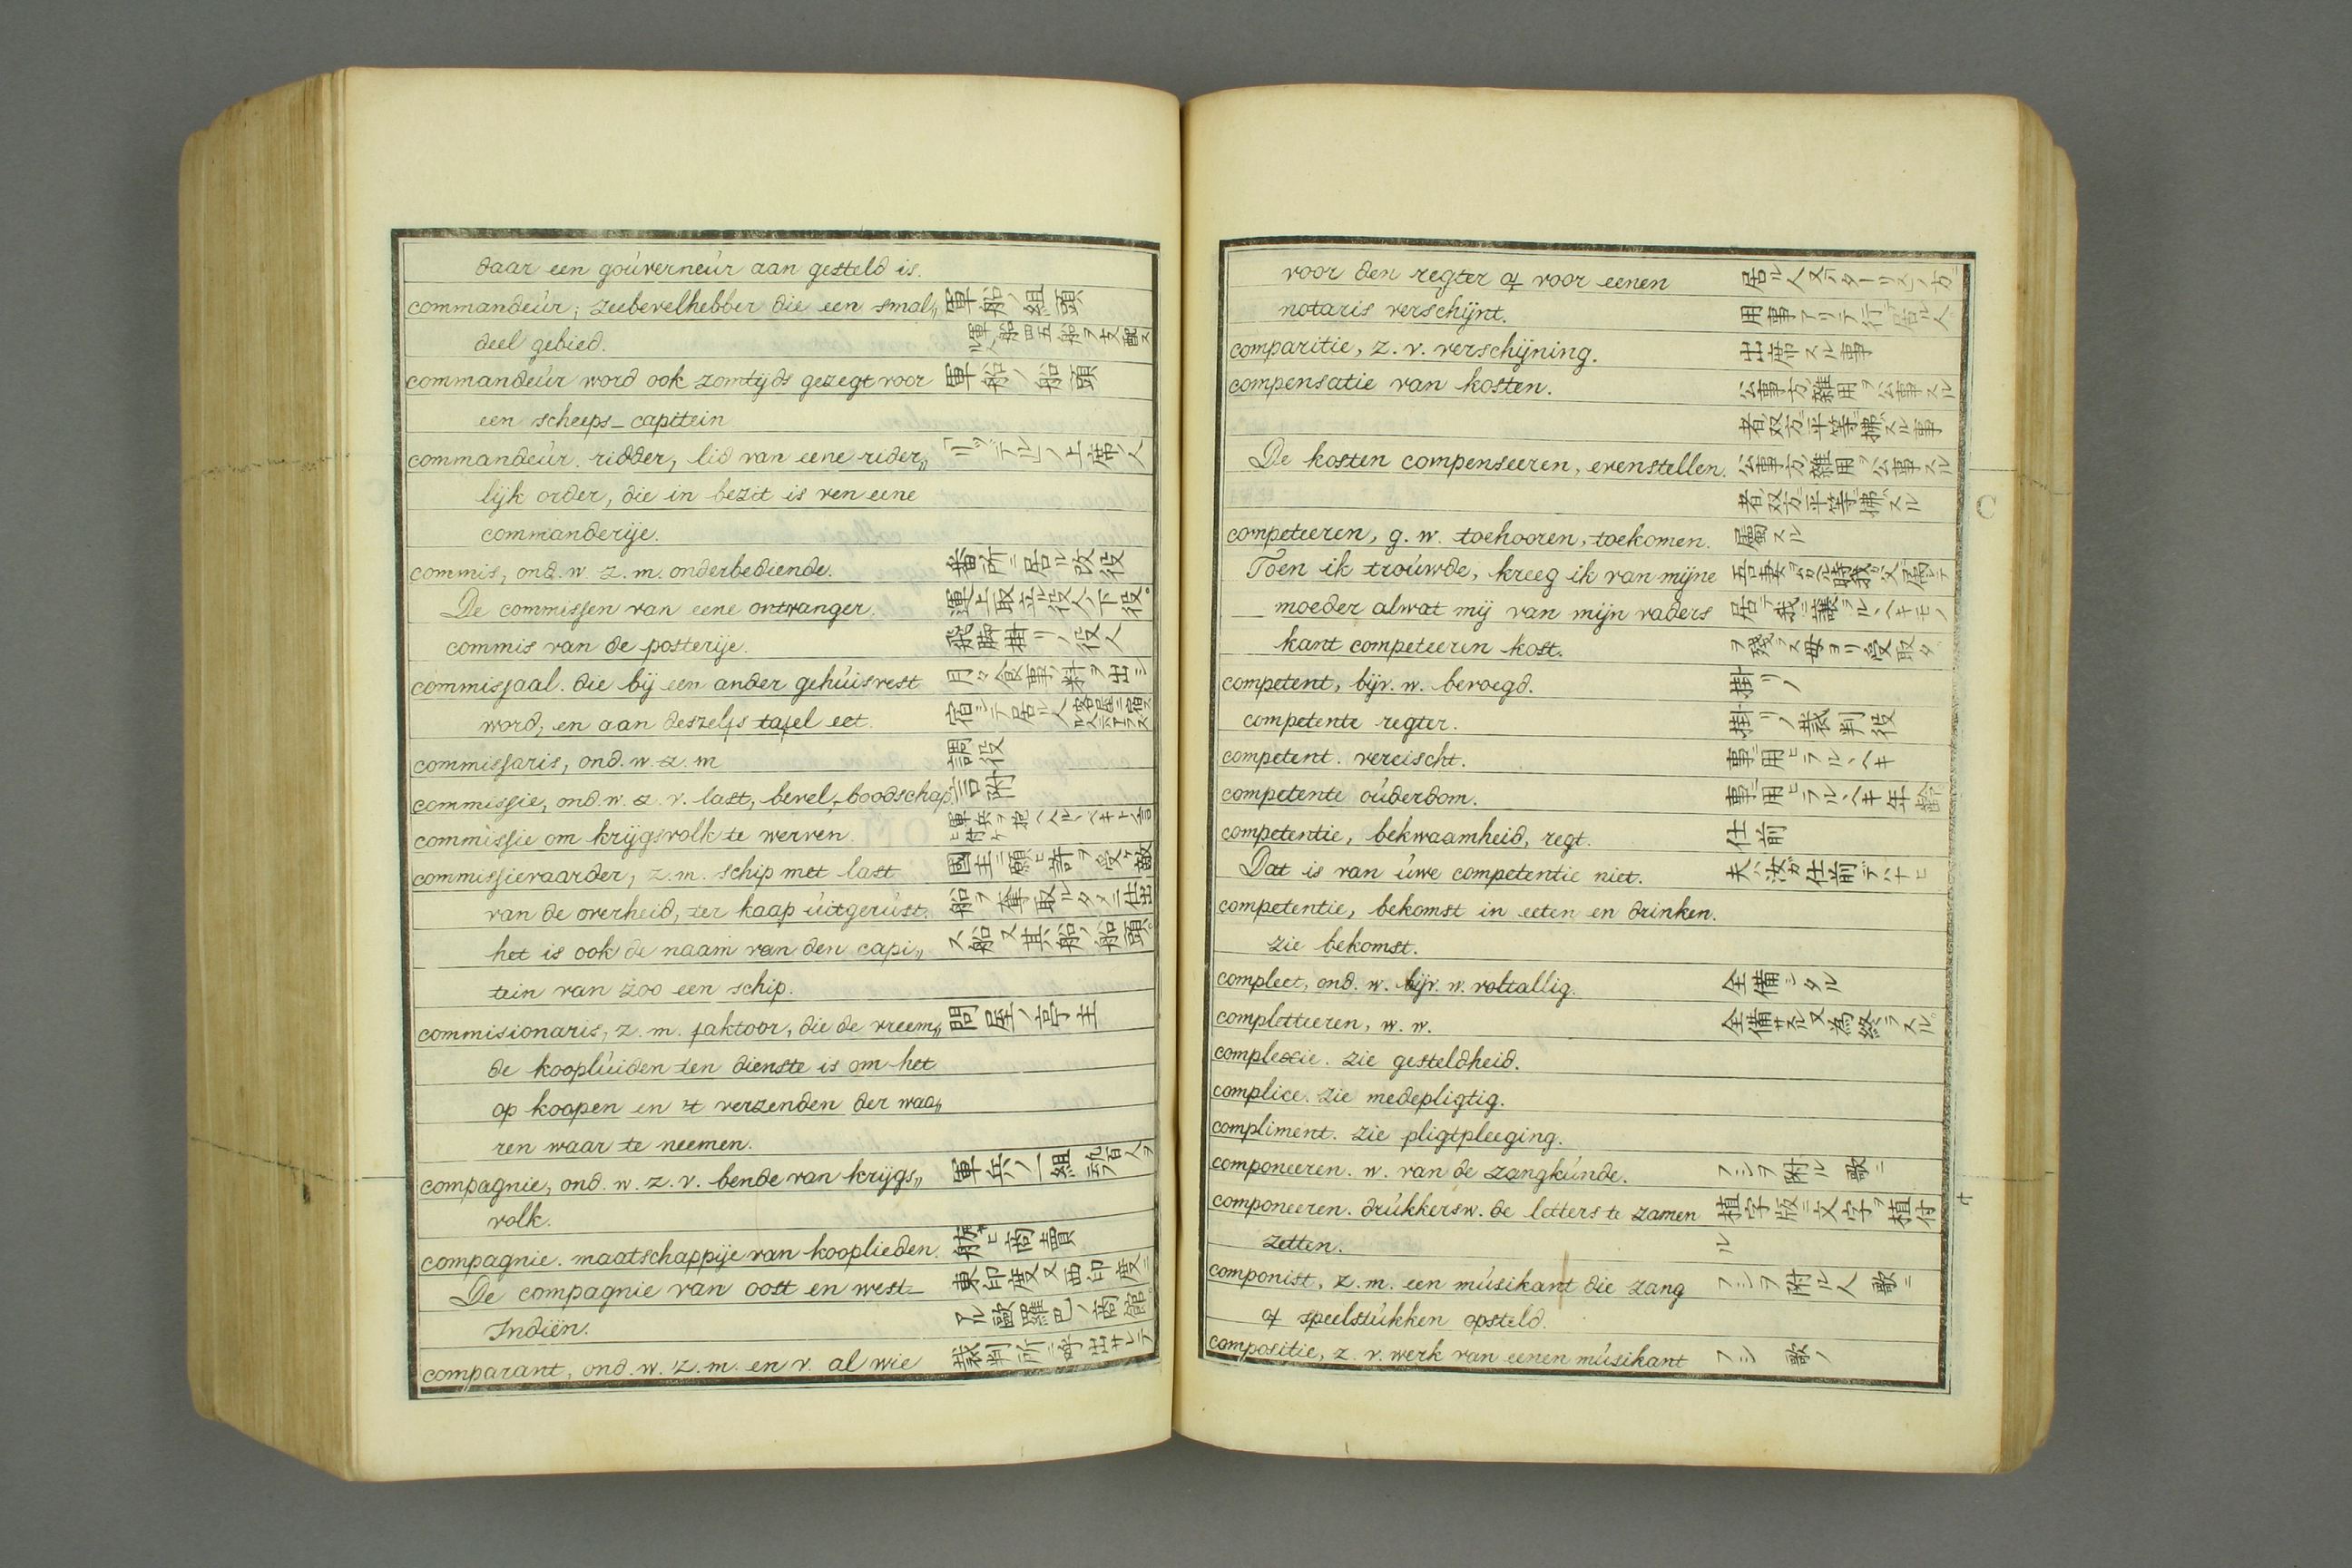 daar een goúverneúr aan gesteld is.
commandeúr; zeebevelhebber die een smal„ 軍船ノ組頭
deel gebied. 軍船四五船ヲ支配スル人
commandeúr word ook zomtijds gezegt voor 軍船ノ船頭
een scheeps-capitein
commandeúr. ridder, lid van eene rider„ 「リッデル」ノ上席ノ人
lijk order, die in bezit is ven eene
commanderije.
commis, ond. w. z. m. onderbediende. 番所ニ居ル改役
De commissen van eene ontvanger. 運上取立ル役人ノ下役
commis van de posterije. 飛脚掛リノ役人
commissaal. die bij een ander gehúisvest 月々食事ノ料ヲ出シ
word, en aan deszelfs tafel eet. 宿シテ居ル人
commissaris, ond. w. z. m 調役
commissie, ond. w. z. v. last, bevel, boodschap 言附
commissie om krijgsvolk te werven. 軍兵ヲ抱ヘルヘキト言
commissievaarder, z. m. schip met last 國主ニ願ヒ許ヲ受ケ敵
van de overheid, ter kaap úitgerúst. 船ヲ奪取ルタメニ仕出
het is ook de naam van den capi„ ス船又其船ノ船頭
tein van zoo een schip.
commisionaris, z. m. faktoor, die de vreem„ 問屋ノ亭主
de kooplúiden ten dienste is om het
op koopen en 't verzenden der waa„
ren waar te neemen.
compagnie, ond. w. z. v. bende van krijgs„ 軍兵ノ一組
volk.
compagnie. maatschappije van kooplieden. 商賣
De compagnie van oost en west- 東印度又西印度ニ
Indiën. アル歐羅巴ノ商館
comparant, ond. w. z. m. en v. al wie 裁判所ニ呼出サレテ
voor den regter of voor eenen 居ル人又ノターリスノ方ニ
notaris verschijnt. 用事アリテ行テ居ル人
comparitie, z. v. verschijning. 出席スル事
compensatie van kosten. 公事方ノ雜用ヲ公事スル
者双方ニ平等ニ拂スル事
De kosten compenseeren, evenstellen. 公事方ノ雜用ヲ公事スル
者双方ニ平等ニ拂スル
competeeren, g. w. toehooren, toekomen. 属スル
Toen ik troúwde, kreeg ik van mijne
moeder alwat mij van mijn vaders
kant competeeren kost. ヲ殘ラス母ヨリ受取タ
competent, bijv. w. bevoegd. 掛リノ
competente regter. 掛リノ裁判役
competent. vereischt. 事ニ用ヒラルヽヘキ
competente oúderdom. 事ニ用ヒラルヽヘキ年齡
competentie, bekwaamheid, regt. 仕前
Dat is van úwe competentie niet. 夫ハ汝ガ仕前デハナヒ
competentie, bekomst in eeten en drinken.
zie bekomst.
compleet, ond. w. bijv. w. voltallig. 全備シタル
completteeren, w. w. 全備サスル又為終ラスル
complexie. zie gesteldheid.
complice. zie medepligtig.
compliment. zie pligtpleeging.
componeeren. w. van de zangkúnde. フシヲ附ル 歌ニ
componeeren. drúkkersw. de letters te zamen 植字版ニ文字ヲ植付
zetten. ル
componist, z. m. een músikant die zang フシヲ附ル人 歌ニ
of speelstúkken opsteld.
compositie, z. v. werk van eenen músikant フシ 歌ノ